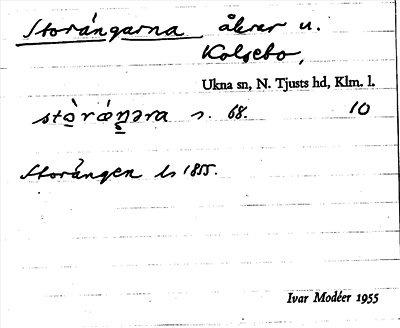 Storängarna åkrar u.
Kolsebo,
Ukna sn, N. Tjusts hd, Klm. l.
stòráŋəra s. 68. 10
Storängen ls 1855.
Ivar Modéer 1955